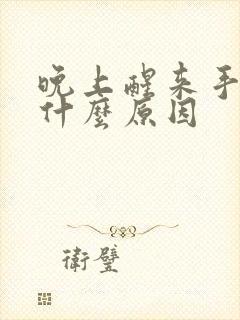 晚上醒来手
什麼原因
衛璧